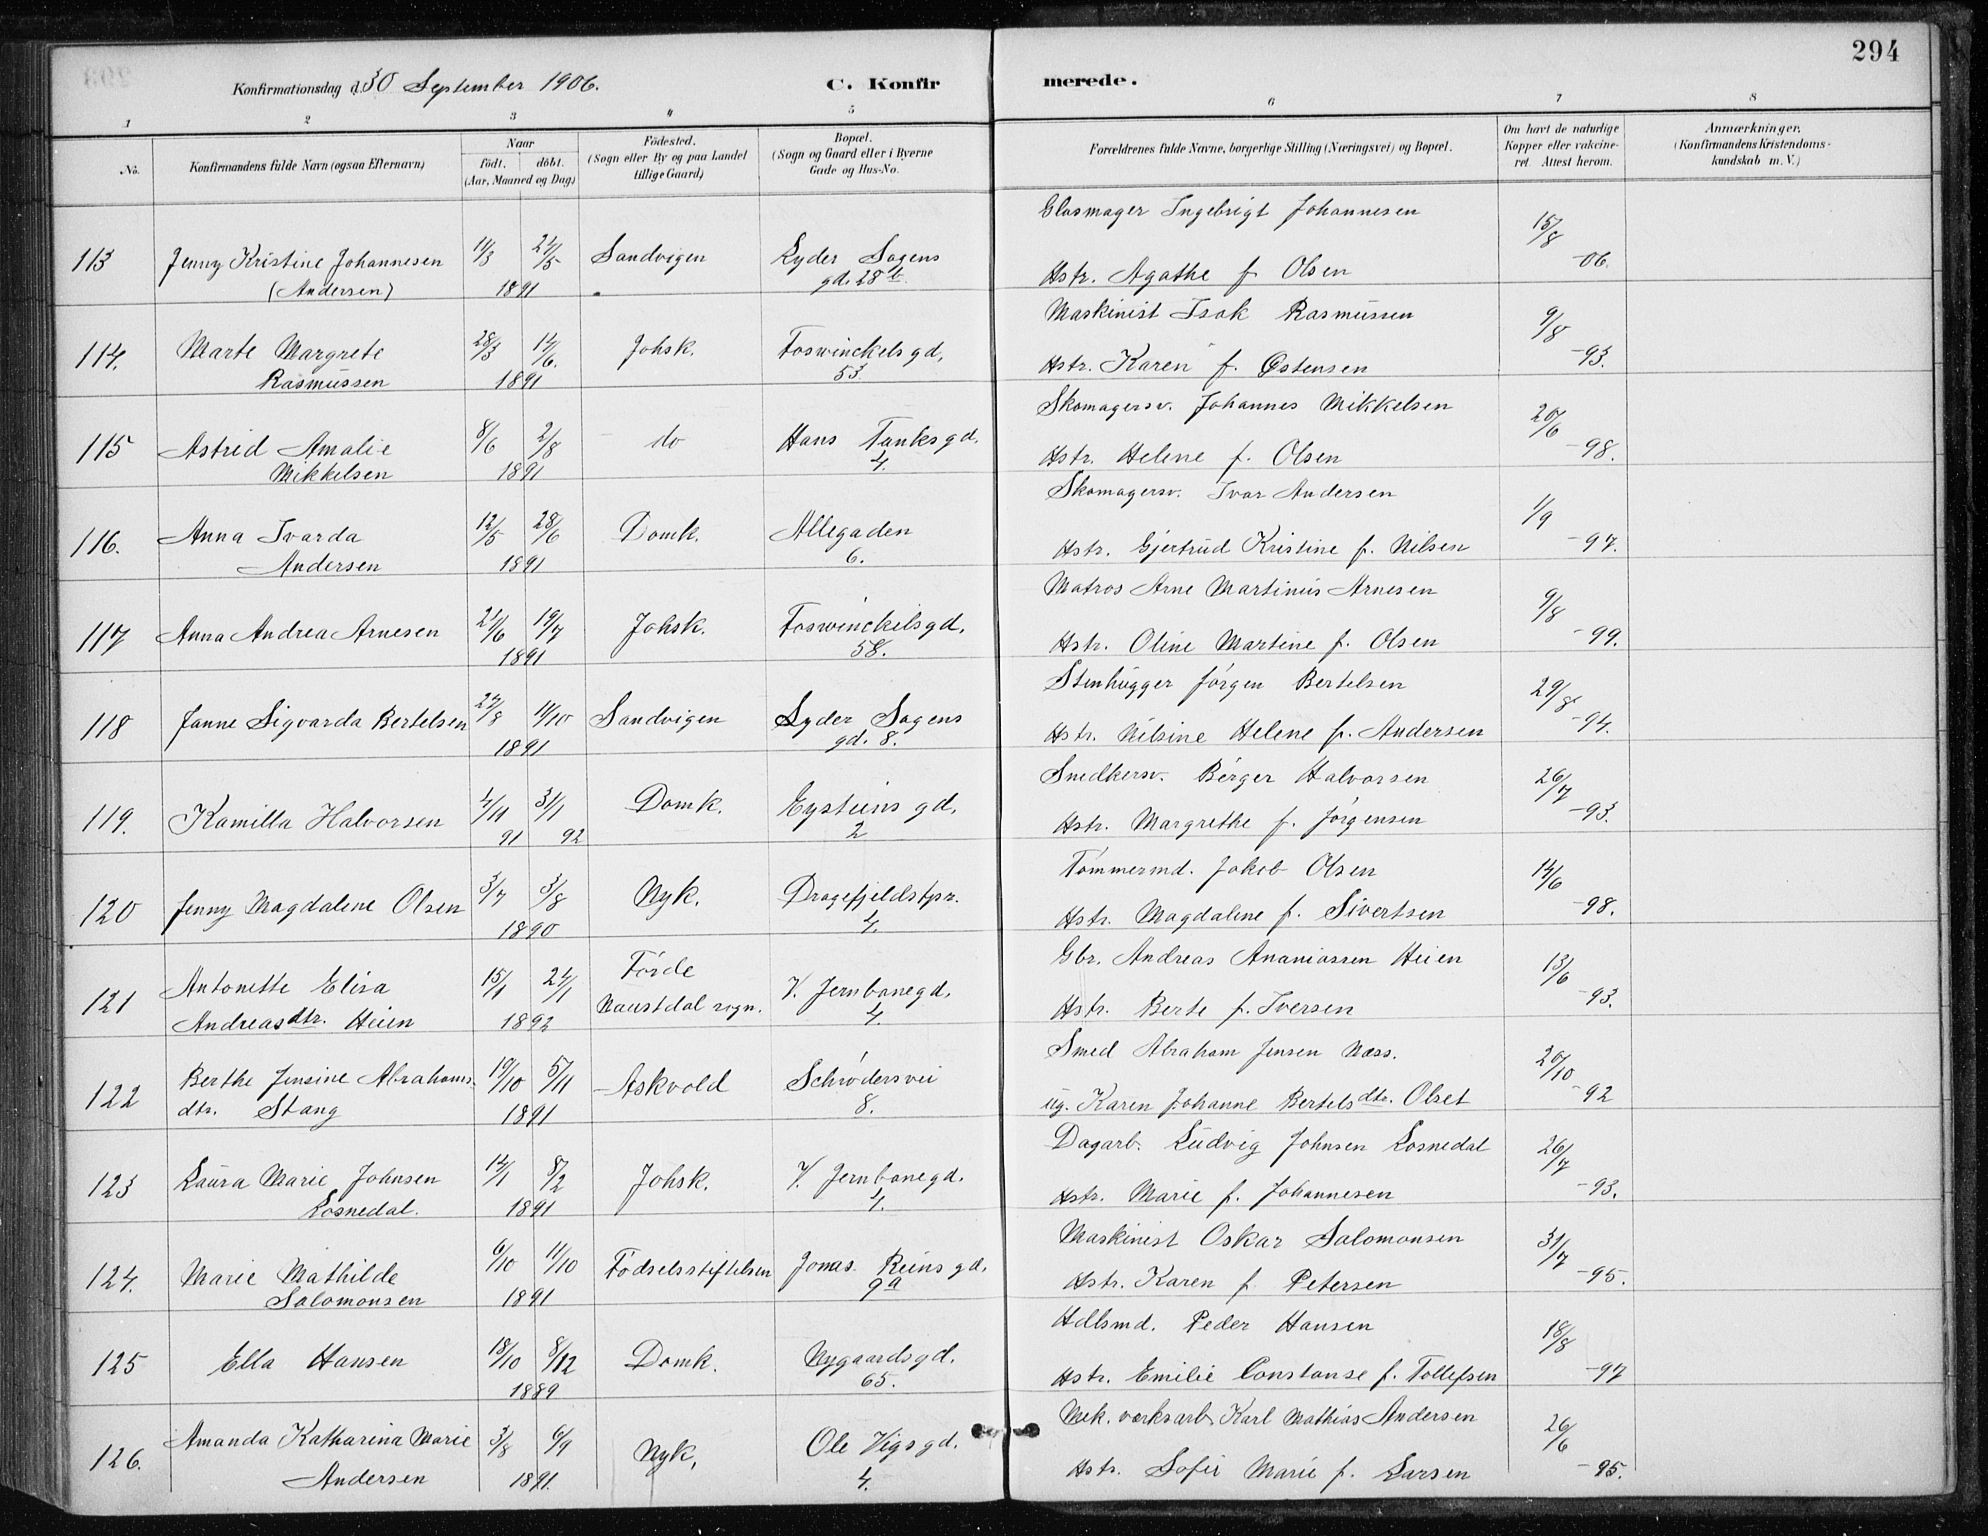 294
Konfirmationsdag d. 30 September 1906.
C. Konfirmerede.
1 2 3 4 5 6 7 8
No.
Konfirmandens fulde Navn (ogsaa Efternavn)
Naar
födt. döbt.
(Aar, Maaned og Dag)
Födested.
(Sogn eller By og paa Landet
tillige Gaard)
Bopæl.
(Sogn og Gaard eller i Byerne
Gade og Hus-No.
Forældrenes fulde Navne, borgerlige Stilling (Næringsvei) og Bopæl.
Om havt de naturlige
Kopper eller vakcine-
ret. Attest herom.
Anmærkninger.
(Konfirmandens Kristendoms-
kundskab m. V.)
Glasmager Ingebrigt Johannesen 15/8
113 Jenny Kristine Johannesen 11/3 24/5 Sandvigen Lyder Sagens
(Andersen) 1891 gd. 28 b. Hstr. Agathe f. Olsen -06.
Maskinist Isak Rasmussen 9/8
114. Marte Margrete 28/3 14/6. Johsk. Foswinckelsgd.
Rasmussen 1891 53 Hstr. Karen f. Østensen -93.
Skomagersv. Johannes Mikkelsen 20/6
115 Astrid Amalie 8/6 2/8 do Hans Tanksgd.
Mikkelsen 1891 4. Hstr. Helene f. Olsen -98.
Skomagersv. Ivar Andersen 1/9
116. Anna Ivarda 12/5 28/6 Domk. Allegaden
Andersen 1891 6. Hstr. Gjertrud Kristine f. Nilsen -97.
Matros Arne Martinus Arnesen 9/8
117 Anna Andrea Arnesen 21/6 19/7 Johsk. Foswinckelsgd.
1891 58. Hstr. Oline Martine f. Olsen -99.
Stenhugger Jørgen Bertelsen 29/8
118 Janne Sigvarda Bertelsen 27/8 11/10 Sandvigen Lyder Sagens
1891 gd. 8. Hstr. Nilsine Helene f. Andersen -94.
Snedkersv. Berger Halvorsen 26/7
119. Kamilla Halvorsen 4/11 31/1 Domk. Eysteins gd.
91 92 2 Hstr. Margrethe f. Jørgensen -93.
Tømmermd. Jakob Olsen 14/6
120 Jenny Magdalene Olsen 3/7 3/8 Nyk. Dragefjeldstpr.
1890 4. Hstr. Magdalene f. Sivertsen -98.
Gbr. Andreas Ananiassen Heien 13/6
121 Antonette Elisa 15/1 24/1 Førde V. Jernbanegd.
Andreasdtr. Heien 1892 Naustdal sogn. 4. Hstr. Berte f. Iversen -93.
Smed Abraham Jensen Næss. 20/10
122 Berthe Jensine Abrahams- 19/10 5/11 Askvold Schrødersvei
dtr. Stang 1891 8. ug. Karen Johanne Bertelsdtr. Olset -92
Dagarb. Ludvig Johnsen Losnedal 26/7
123 Laura Marie Johnsen 14/1 8/2 Johsk. V. Jernbanegd.
Losnedal. 1891 4. Hstr. Marie f. Johannesen -93.
Maskinist Oskar Salomonsen 31/7
124. Marie Mathilde 6/10 11/10 Fødselsstiftelsen Jonas Reins gd.
Salomonsen 1891 9a Hstr. Karen f. Petersen -95.
Hdlsmd. Peder Hansen 18/8
125 Ella Hansen 18/10 8/12 Domk. Nygaardsgd.
1889 65. Hstr. Emilie Constanse f. Tollefsen -97
Mek. værksarb. Karl Mathias Andersen 26/6
126. Amanda Katharina Marie 3/8 6/9 Nyk. Ole Vigsgd.
Andersen 1891. 4. Hstr. Sofie Marie f. Larsen -95.